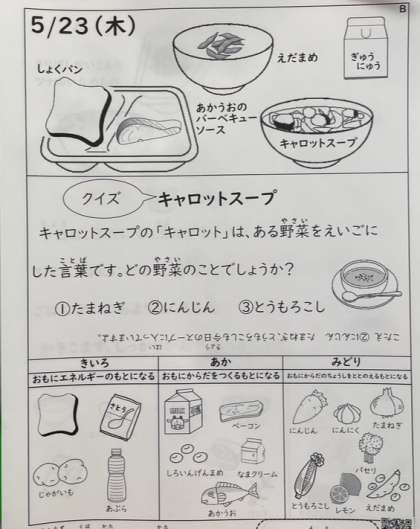 B
5/23(木)
えだまめ
ぎゅう
にゅう
しょくパン
あかうおの
バーベキュー
ソース
キャロットスープ
クイズ
キャロットスープ
やさい
キャロットスープの「キャロット」は、ある野菜をえいごに
ことば
やさい
した言葉です。どの野菜のことでしょうか?
①たまねぎ ②にんじん ③とうもろこし
こたえ ②にんじん たまねぎ、とうもろこしも今日のスープに入っていますよ。
きょう
はい
きいろ
あか
みどり
おもにエネルギーのもとになる
おもにからだをつくるもとになる
おもにからだのちょうしをととのえるもとになる
さとう
ベーコン
にんじん
にんにく
たまねぎ
しろいんげんまめ
なまクリーム
パセリ
じゃがいも
あぶら
あかうお
とうもろこし
レモン
えだまめ